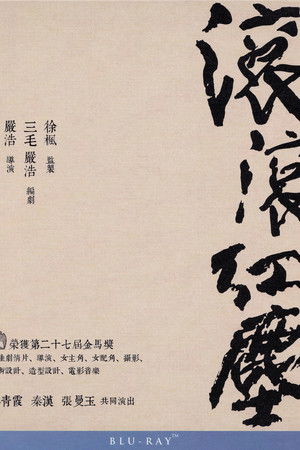 滾滾紅塵
徐楓 監製
三毛 嚴浩 編劇
嚴浩 導演
榮獲第二十七届金馬獎
佳劇情片、導演、女主角、女配角、攝影、
術設計、造型設計、電影音樂
青霞 秦漢 張曼玉 共同演出
BLU-RAY™